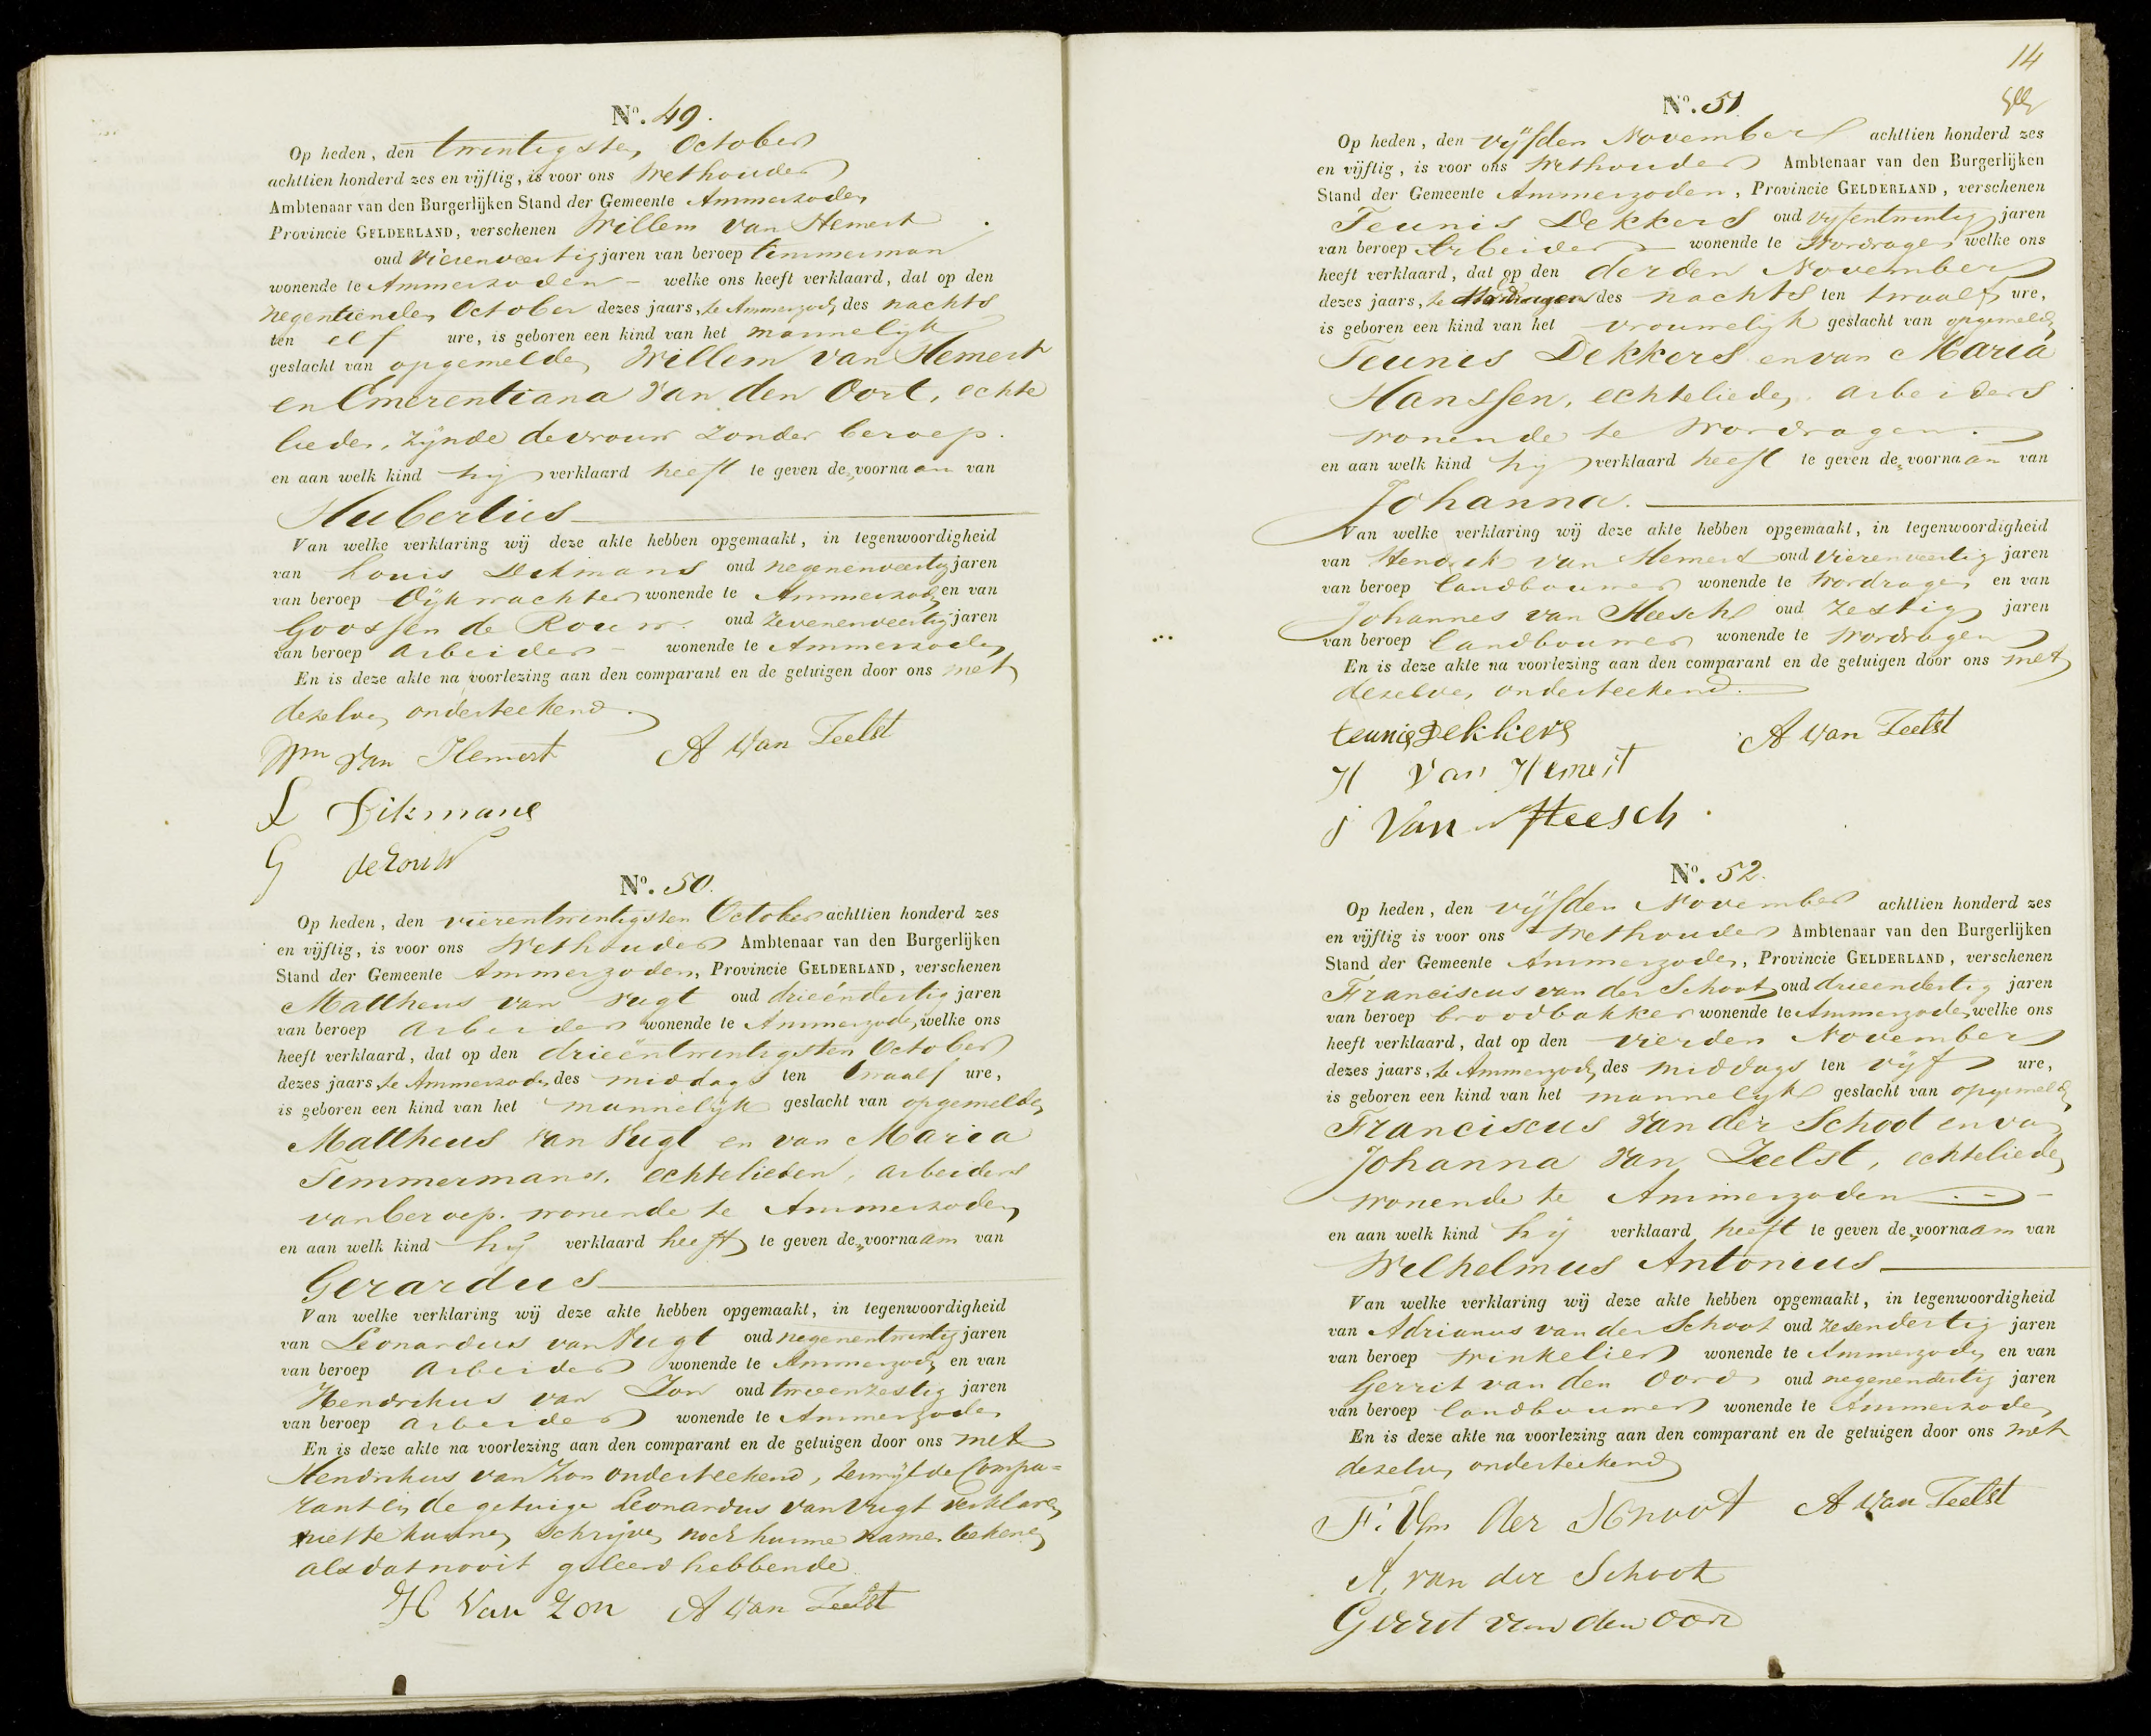 No. 49.
Op heden, den twintigsten October
achttien honderd zes en vijftig, is voor ons Wethouder
Ambtenaar van den Burgerlijken Stand der Gemeente Ammerzoden
Provincie GELDERLAND, verschenen Willem van Hemert
oud vierenveertig jaren van beroep timmerman
wonende te Ammerzoden – welke ons heeft verklaard, dat op den
negentienden October dezes jaars, te Ammerzoden des nachts
ten elf ure, is geboren een kind van het mannelijk
geslacht van opgemelden Willem van Hemert
en Emerentiana van den Oort, echte
lieden, zijnde de vrouw zonder beroep.
en aan welk kind hij verklaard heeft te geven de voornaam van
Hubertus
Van welke verklaring wij deze akte hebben opgemaakt, in tegenwoordigheid
van Louis Dikmans oud negenenveertig jaren
van beroep Dijkwachter wonende te Ammerzoden en van
Goossen de Rouw oud zevenenveertig jaren
van beroep arbeider – wonende te Ammerzoden
En is deze akte na voorlezing aan den comparant en de getuigen door ons met
dezelven onderteekend.
Wm van Hemert A van Zeelst
L Dikmans
G de Rouw
No. 50.
Op heden, den vierentwintigsten October achttien honderd zes
en vijftig, is voor ons Wethouder Ambtenaar van den Burgerlijken
Stand der Gemeente Ammerzoden, Provincie GELDERLAND, verschenen
Mattheus van Vugt oud drieëndertig jaren
van beroep arbeider wonende te Ammerzoden welke ons
heeft verklaard, dat op den drieëntwintigsten October
dezes jaars, te Ammerzoden des middags ten twaalf ure,
is geboren een kind van het mannelijk geslacht van opgemelden
Mattheus van Vugt en van Maria
Timmermans, echtelieden, arbeiders
van beroep. wonende te Ammerzoden
en aan welk kind hij verklaard heeft te geven de voornaam van
Gerardus
Van welke verklaring wij deze akte hebben opgemaakt, in tegenwoordigheid
van Leonardus van Vugt oud negenentwintig jaren
van beroep arbeider wonende te Ammerzoden en van
Hendrikus van Zon oud tweeenzestig jaren
van beroep arbeider wonende te Ammerzoden
En is deze akte na voorlezing aan den comparant en de getuigen door ons met
Hendrikus van Zon onderteekend, terwijl de Compa=
rant en de getuige Leonardus van Vugt verklaren
niet te kunnen schrijven noch hunne namen teekenen
als dat nooit geleerd hebbende.
H van Zon A van Zeelst
14
No. 51
Op heden, den vijfden November achttien honderd zes
en vijftig, is voor ons Wethouder Ambtenaar van den Burgerlijken
Stand der Gemeente Ammerzoden, Provincie GELDERLAND, verschenen
Teunis Dekkers oud vijfentwintig jaren
van beroep Arbeider – wonende te Wordragen welke ons
heeft verklaard, dat op den derden November
dezes jaars, te Wordragen des nachts ten twaalf ure,
is geboren een kind van het vrouwelijk geslacht van opgemelden
Teunis Dekkers en van Maria
Hanssen, echtelieden, arbeiders
wonende te Wordragen.
en aan welk kind hij verklaard heeft te geven de voornaam van
Johanna.
Van welke verklaring wij deze akte hebben opgemaakt, in tegenwoordigheid
van Hendrik van Hemert oud vierenveertig jaren
van beroep landbouwer wonende te Wordragen en van
Johannes van Heesch oud zestig jaren
van beroep landbouwer wonende te Wordragen
En is deze akte na voorlezing aan den comparant en de getuigen door ons met
dezelven onderteekend.
teunis Dekkers A van Zeelst
H van Hemert
J van Heesch
No. 52.
Op heden, den vijfden November achttien honderd zes
en vijftig is voor ons Wethouder Ambtenaar van den Burgerlijken
Stand der Gemeente Ammerzoden, Provincie GELDERLAND, verschenen
Franciscus van der Schoot oud drieendertig jaren
van beroep broodbakker wonende te Ammerzoden welke ons
heeft verklaard, dat op den vierden November
dezes jaars, te Ammerzoden des middags ten vijf ure,
is geboren een kind van het mannelijk geslacht van opgemelden
Franciscus van der Schoot en van
Johanna van Zeelst, echtelieden
wonende te Ammerzoden
en aan welk kind hij verklaard heeft te geven de voornaam van
Wilhelmus Antonius
Van welke verklaring wij deze akte hebben opgemaakt, in tegenwoordigheid
van Adrianus van der Schoot oud zesendertig jaren
van beroep winkelier wonende te Ammerzoden en van
Gerrit van den Oord oud negenendertig jaren
van beroep landbouwer wonende te Ammerzoden
En is deze akte na voorlezing aan den comparant en de getuigen door ons met
dezelven onderteekend
F. Van der Schoot A van Zeelst
A. van der Schoot
Gerrit van den oord